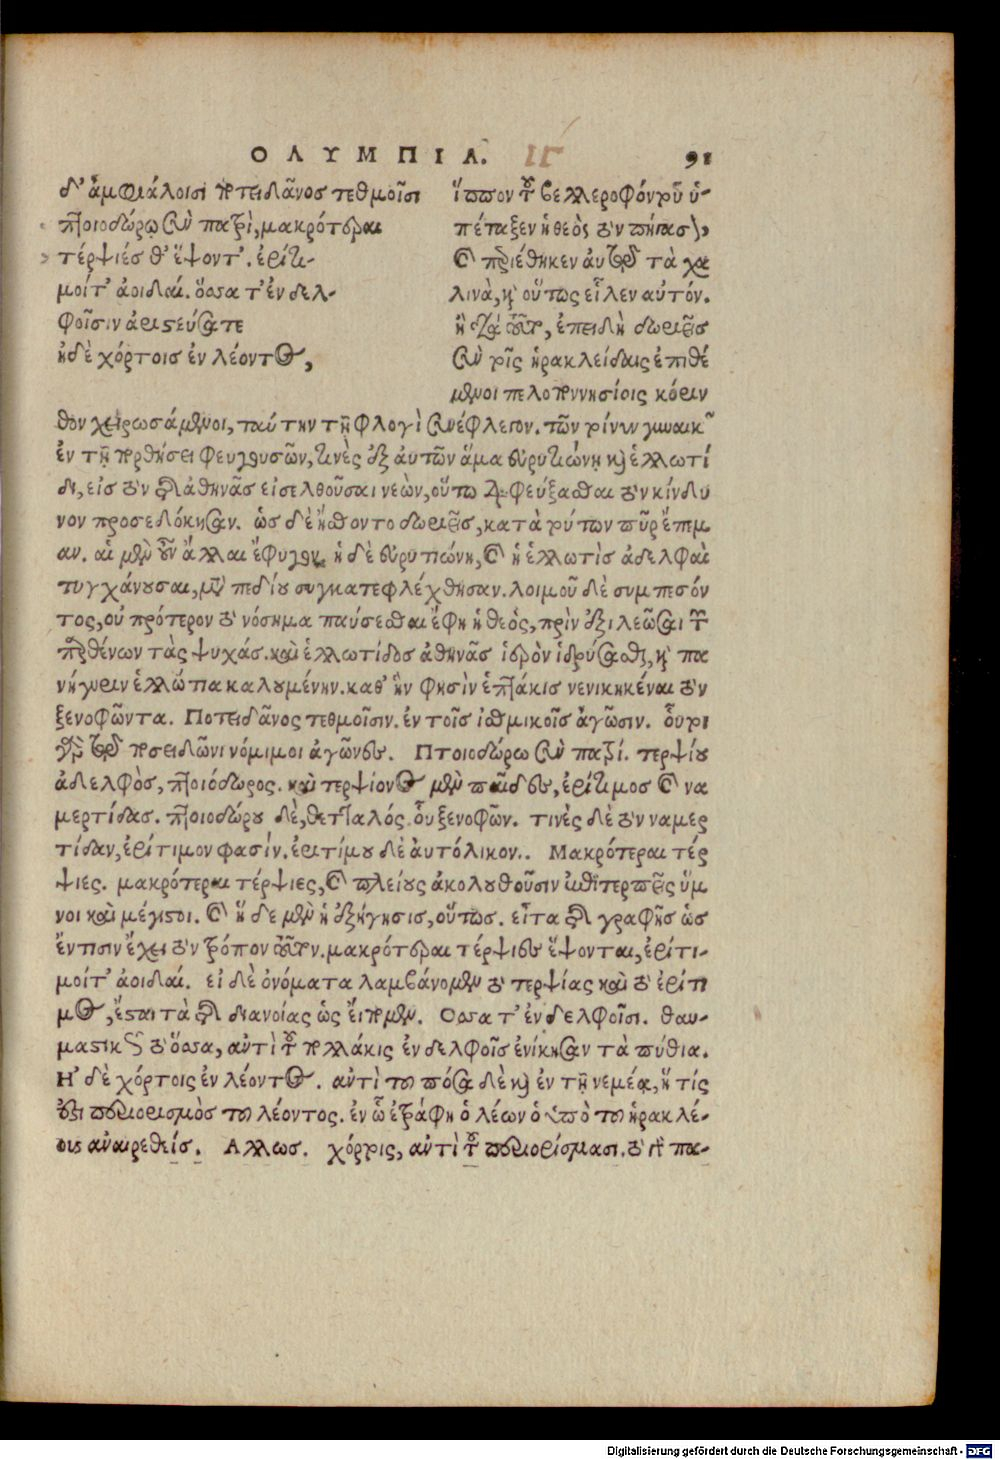 ΟΛΥΜΠΙΑ. ΙΓ 91
δ' ἀμφιάλοισι ποτειδᾶνος τεθμοῖσι
πτοιοδώρῳ σὺν πατρὶ, μακρότεραι
τέρψιές θ' ἕψοντ'. ἐρίτι-
μοίτ' ἀοιδαί. ὅσσα τ' ἐν δελ-
φοῖσιν ἀριστεύσατε
ἠδὲ χόρτοις ἐν λέοντος,
ἵππον τοῦ βελλεροφόντου ὑ-
πέταξεν ἡ θεὸς τὸν πήγασον,
καὶ περιέθηκεν αὐτῷ τὰ χα
λινὰ, καὶ οὕτως εἷλεν αὐτόν.
ἢ διὰ τοῦτο, ἐπειδὴ δωριεῖς
σὺν τοῖς ἡρακλείδαις ἐπιθέ
μενοι πελοποννησίοις κόριν
θον χειρωσάμενοι, ταύτην τῇ φλογὶ συνέφλεγον. τῶν τοίνυν γυναικῶν
ἐν τῇ πορθήσει φευγουσῶν, τινὲς ἐξ αὐτῶν ἅμα εὐρυτιώνῃ καὶ ἑλλωτί
δι, εἰς τὸν τῆς ἀθηνᾶς εἰσελθοῦσαι νεὼν, οὕτω διαφεύξασθαι τὸν κίνδυ
νον προσεδόκησαν. ὡς δὲ ᾔσθοντο δωριεῖς, κατὰ τούτων πῦρ ἔπεμ
αν. αἱ μὲν οὖν ἄλλαι ἔφυγον, ἡ δὲ εὐρυτιώνη, καὶ ἡ ἑλλωτὶς ἀδελφαὶ
τυγχάνουσαι, μετὰ παιδίου συγκατεφλέχθησαν. λοιμοῦ δὲ συμπεσόν
τος, οὐ πρότερον τὸ νόσημα παύσεσθαι ἔφη ἡ θεὸς, πρὶν ἐξιλεῶσαι τῶν
παρθένων τὰς ψυχάς. καὶ ἑλλωτίδος ἀθηνᾶς ἱερὸν ἱδρύσασθαι, καὶ πα
νήγυριν ἑλλώτια καλουμένην. καθ' ἣν φησὶν ἑπτάκις νενικηκέναι τὸν
ξενοφῶντα. Ποτειδᾶνος τεθμοῖσιν. ἐν τοῖς ἰσθμικοῖς ἀγῶσιν. οὗτοι
γὰρ τῷ ποσειδῶνι νόμιμοι ἀγῶνες. Πτοιοδώρω σὺν πατρί. τερψίου
ἀδελφὸς, πτοιόδωρος. καὶ τερψίονος μὲν παῖδες, ἐρίτιμος καὶ να
μερτίδας. πτοιοδώρου δὲ, θετταλός. οὗ ξενοφῶν. τινὲς δὲ τὸν ναμερ
τίδαν, ἐρίτιμον φασίν. ἐριτίμου δὲ αὐτόλικον.. Μακρότεραι τέρ
ψιες. μακρότεραι τέρψιες, καὶ πλείους ἀκολουθοῦσιν ἐπιτερπεῖς ὕμ
νοι καὶ μέγιστοι. καὶ ἥδε μὲν ἡ ἐξήγησις, οὕτως. εἶτα τῆς γραφῆς ὡς
ἔν τισιν ἔχει τὸν τρόπον τοῦτον. μακρότεραι τέρψιες ἕψονται, ἐρίτι-
μοίτ' ἀοιδαί. εἰ δὲ ὀνόματα λαμβάνομεν τὸ τερψίας καὶ τὸ ἐρίτι
μος, ἔσται τὰ τῆς διανοίας ὡς εἴπομεν. Οσσα τ' ἐν δελφοῖσι. θαυ-
μαστικῶς τὸ ὅσσα, αὐτὶ τοῦ πολλάκις ἐν δελφοῖς ἐνίκησαν τὰ πύθια.
Η' δὲ χόρτοις ἐν λέοντος. αὐτὶ του πόσα δὲ καὶ ἐν τῇ νεμέᾳ, ἥ τίς
ἐστι περιορισμὸς του λέοντος. ἐν ᾧ ἐτράφη ὁ λέων ὁ ὑπὸ του ἡρακλέ-
ους ἀναιρεθείς. Αλλως. χόρτοις, αὐτὶ τοῦ περιορίσμασι. τὸ γὰρ πα-
Digitalisierung gefördert durch die Deutsche Forschungsgemeinschaft - DFG